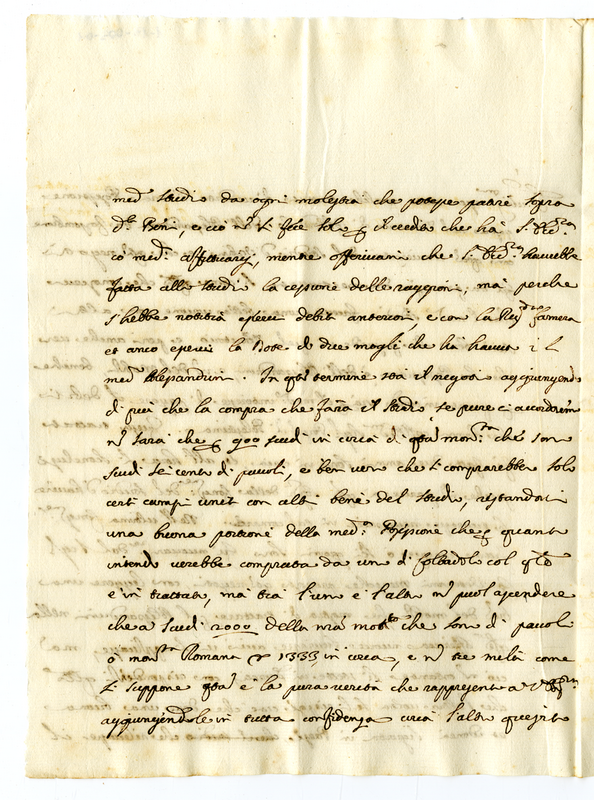 med.º Studio da ogni molestia che potesse patire sopra
d.i Beni, e ciò n' si fece sol p il credito che ha S. Ecc.za
co med.i affittuarij, mentre offerivami che S. Ecc.za haverebbe
fatta allo Studio la cessione delle raggioni, ma perche
s'hebbe notitia esservi debiti anteriori, e con la Rev. Camera
et anco esservi la Dote di due mogli che ha havute il
med.º Alesandrini. In q.to termine stà il negotio aggiungendo
di più che la compra che faria il Studio, se pure ci accordaremo
n' sarà che p 900 scudi in circa di q.ta mon.ta che son
scudi sei cento di pavoli, e ben vero che si comprarebbe solo
certi campi uniti con altri beni del Studio, restandovi
una buona portione della med.ª Possessione che p quanto
intendo verebbe comprata da un di col q.le
è in trattato, ma tra l'un e l'altro n' puol ascendere
che a scudi 2000 della n.ra mon.ta che son di pavoli
ò mon.ta Romana 1333 in circa, e n' tre mila come
si suppone q.ta è la pura verità che rappresento a V.
aggiungendole in tutta confidenza circa l'altro quesito